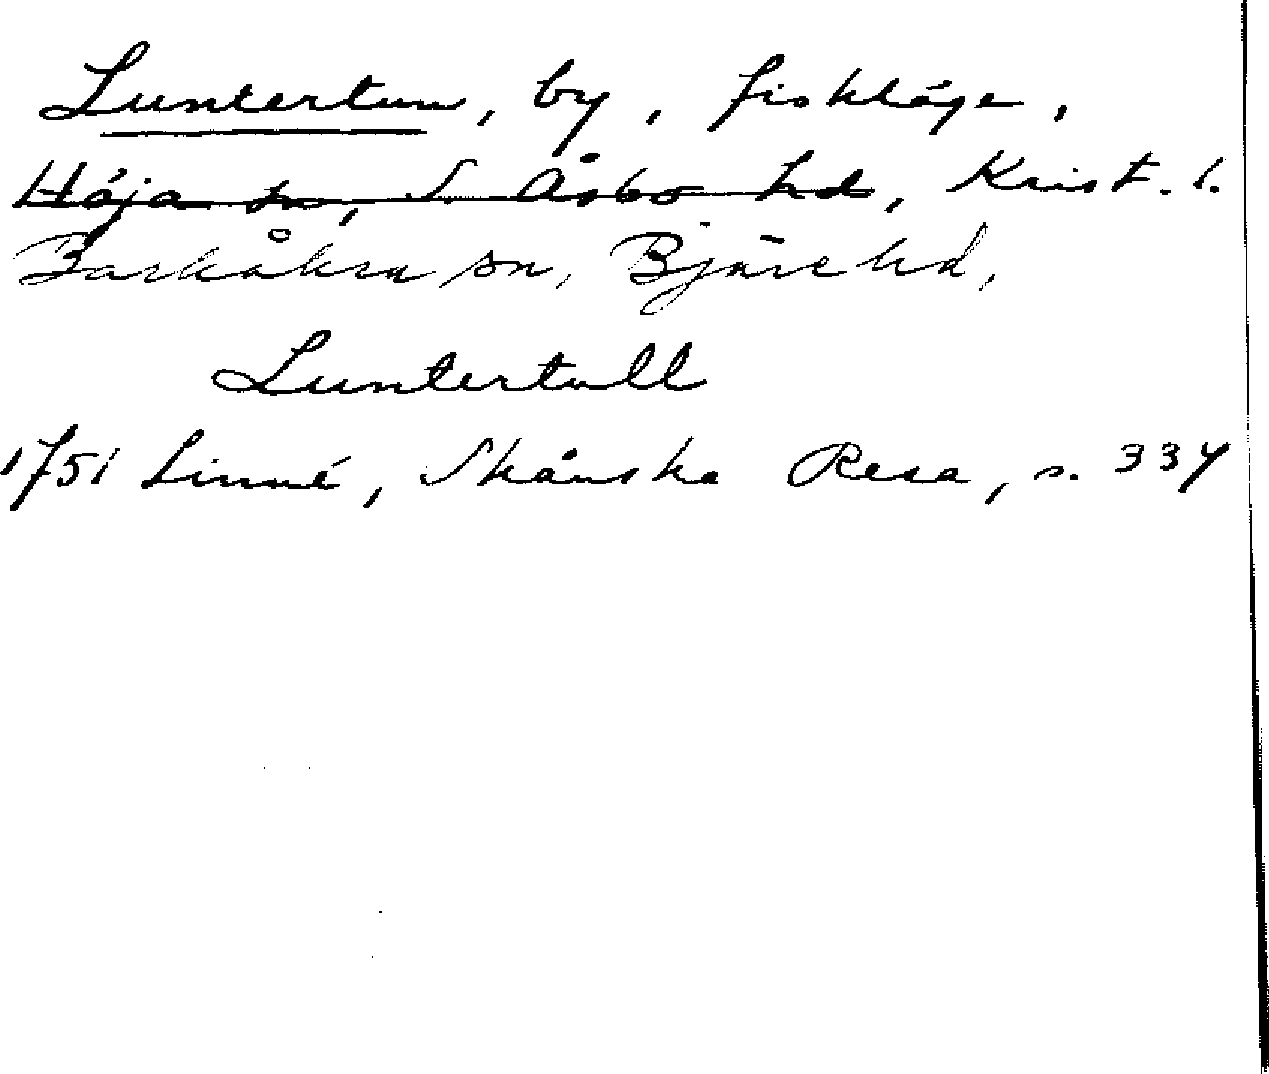 Luntertun, by, fiskläge,
Höja sn, S. Åsbo hd, Krist. l.
Barkåkra sn, Bjäre hd,
Luntertull
1751 Linné, Skånska Resa, s. 337